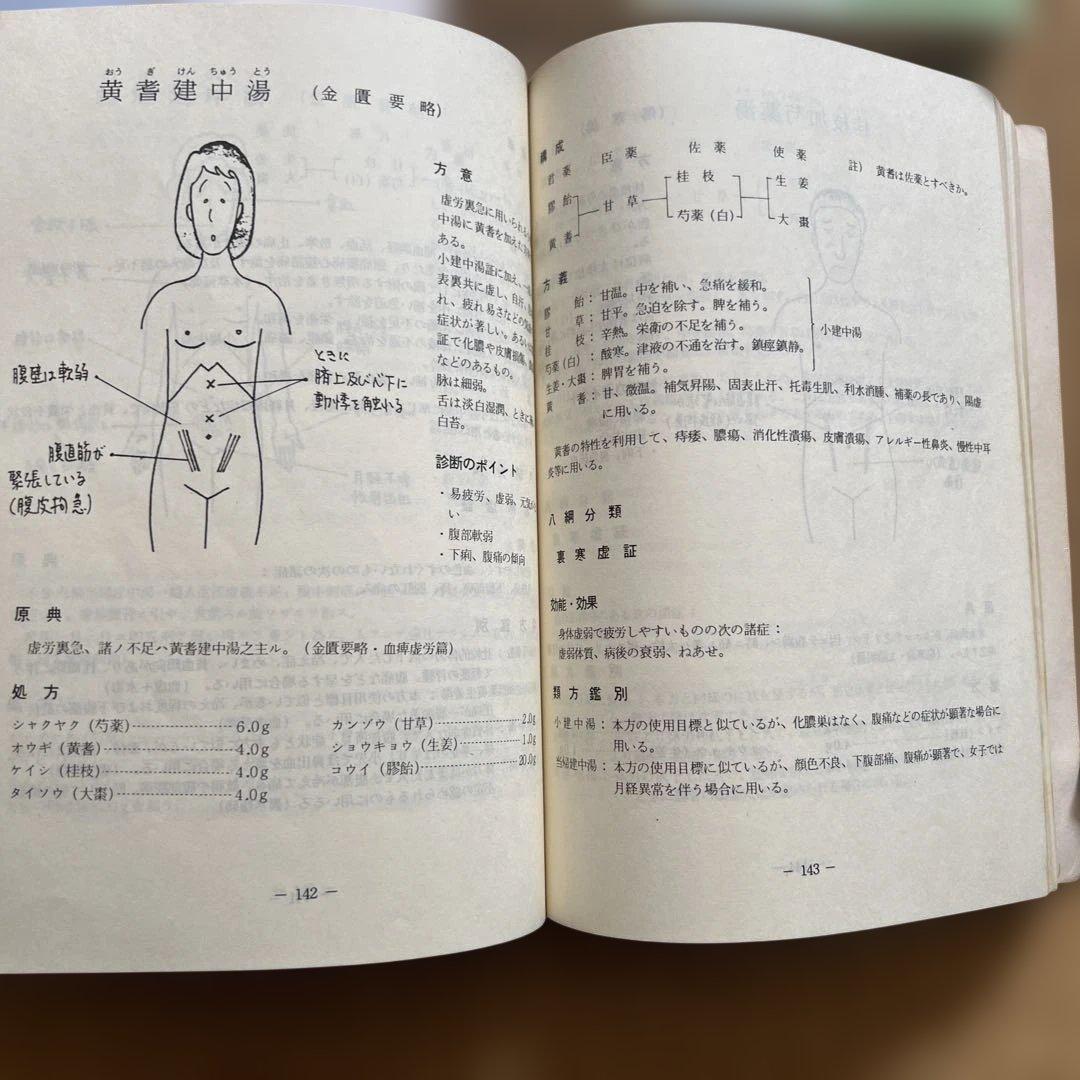 おう ぎ けん ちゅう とう
黄耆建中湯 (金匱要略)
腹壁は軟弱
腹直筋が
緊張している
(腹皮拘急)
ときに
臍上及び心下に
動悸を触れる
方意
虚労裏急に用いられる
中湯に黄耆を加えた
ある。
小建中湯証に加え、
表裏共に虚し、自汗、
れ、疲れ易さなどの
症状が著しい。あるい
証で化膿や皮膚
などのあるもの。
脉は細弱。
舌は淡白湿潤、ときに
白苔。
診断のポイント
・易疲労、虚弱、元気が
い
・腹部軟弱
・下痢、腹痛の傾向
原典
虚労裏急、諸ノ不足ハ黄耆建中湯之主ル。(金匱要略・血痺虚労篇)
処方
シャクヤク(芍薬) 6.0g
オウギ(黄耆) 4.0g
ケイシ(桂枝) 4.0g
タイソウ(大棗) 4.0g
カンゾウ(甘草) 2.0g
ショウキョウ(生姜) 1.0g
コウイ(膠飴) 20.0g
― 142 ―
構成
君薬 臣薬 佐薬 使薬
膠飴 甘草 桂枝 生姜
黄耆 芍薬(白) 大棗
註) 黄耆は佐薬とすべきか。
方義
膠飴:甘温。中を補い、急痛を緩和。
甘草:甘平。急迫を除す。脾を補う。
桂枝:辛熱。栄衛の不足を補う。
芍薬(白):酸寒。津液の不通を治す。鎮痙鎮静。
生姜・大棗:脾胃を補う。
小建中湯
黄耆:甘、微温。補気昇陽、固表止汗、托毒生肌、利水消腫、補薬の長であり、陽虚
に用いる。
黄耆の特性を利用して、痔瘻、膿瘍、消化性潰瘍、皮膚潰瘍、アレルギー性鼻炎、慢性中耳
炎等に用いる。
八綱分類
裏寒虚証
効能・効果
身体虚弱で疲労しやすいものの次の諸症:
虚弱体質、病後の衰弱、ねあせ。
類方鑑別
小建中湯:本方の使用目標と似ているが、化膿巣はなく、腹痛などの症状が顕著な場合に
用いる。
当帰建中湯:本方の使用目標に似ているが、顔色不良、下腹部痛、腹痛が顕著で、女子では
月経異常を伴う場合に用いる。
― 143 ―